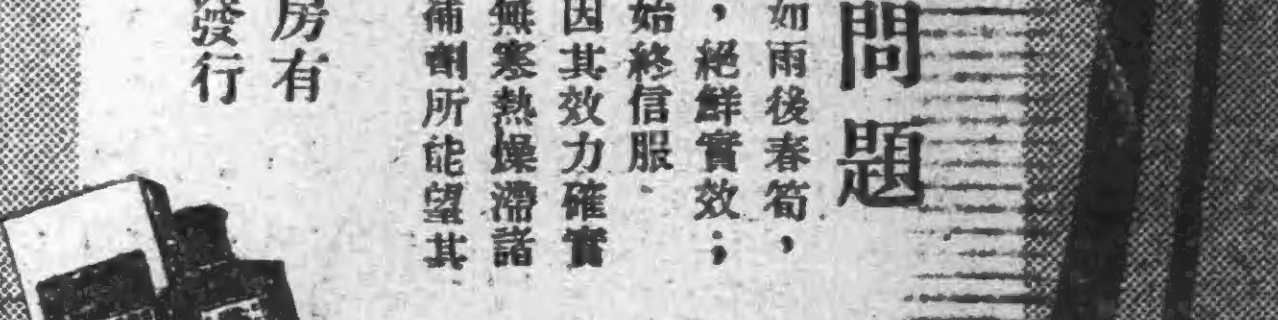 問題
如雨後春筍，
，絕鮮實效；
始終信服
因其效力確實
無寒熱燥滯諸
補劑所能望其
房有
發行